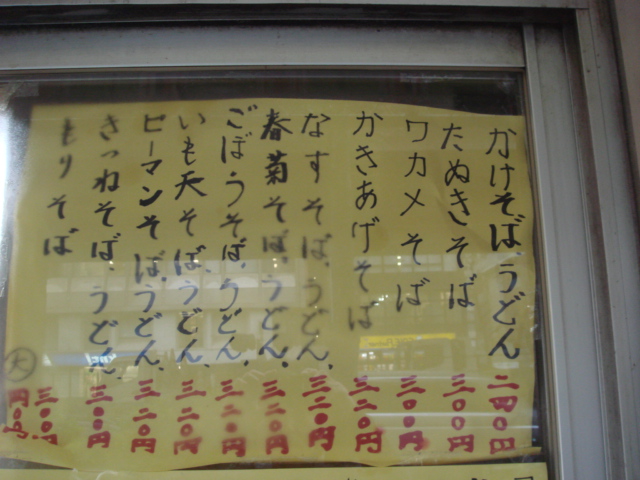 かけそば、うどん 二四〇円
たぬきそば 三〇〇円
ワカメそば 三〇〇円
かきあげそば 三二〇円
なすそば、うどん、 三二〇円
春菊そば、うどん、 三二〇円
ごぼうそば、うどん、 三二〇円
いも天そば、うどん、 三二〇円
ピーマンそば、うどん、 三二〇円
きつねそば、うどん、 三〇〇円
もりそば 三〇〇円
大